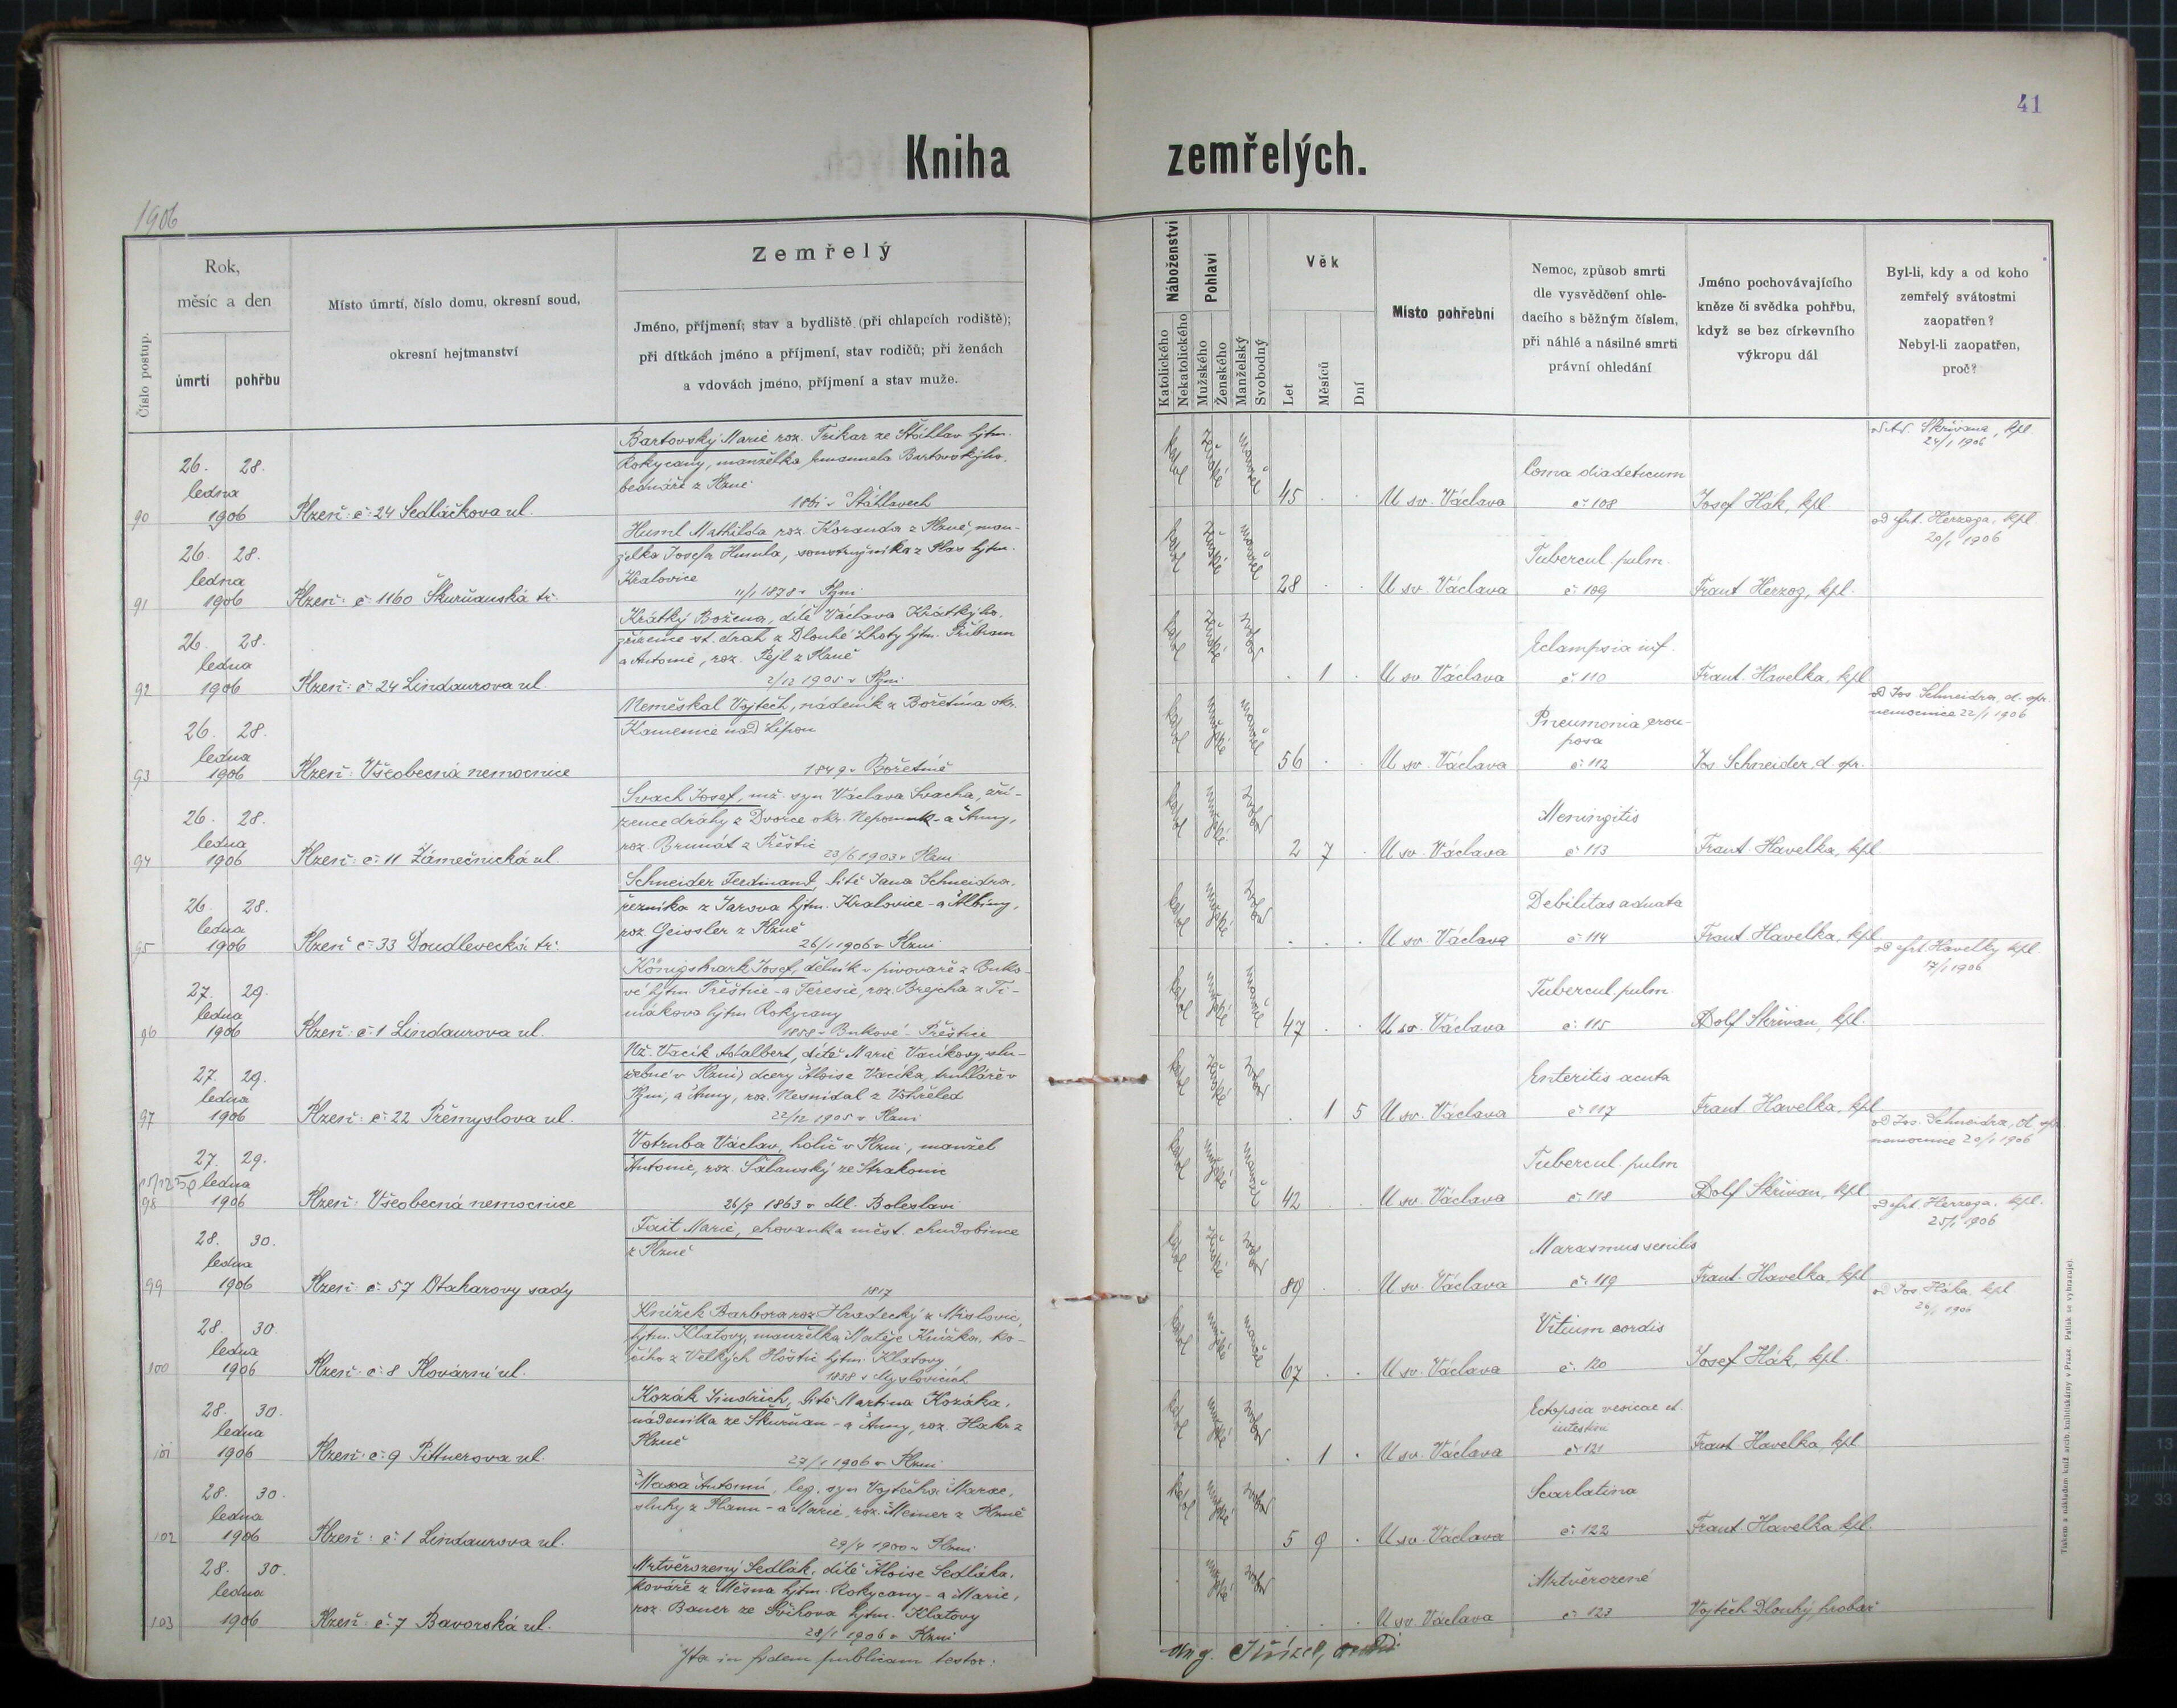 41
Kniha zemřelých.
1906
Číslo postup.
Rok,
měsíc a den
úmrtí
pohřbu
Místo úmrtí, číslo domu, okresní soud,
okresní hejtmanství
Zemřelý
Jméno, příjmení; stav a bydliště (při chlapcích rodiště);
při dítkách jméno a příjmení, stav rodičů; při ženách
a vdovách jméno, příjmení a stav muže.
Náboženství
Katolického
Nekatolického
Pohlaví
Mužského
Ženského
Manželský
Svobodný
Věk
Let
Měsíců
Dní
Místo pohřební
Nemoc, způsob smrti
dle vysvědčení ohle-
dacího s běžným číslem,
při náhlé a násilné smrti
právní ohledání
Jméno pochovávajícího
kněze či svědka pohřbu,
když se bez církevního
výkropu dál
Byl-li, kdy a od koho
zemřelý svátostmi
zaopatřen?
Nebyl-li zaopatřen,
proč?
90
26. 28.
ledna
1906
Plzeň: č. 24 Sedláčkova ul.
Bartovský Marie roz. Trikar ze Štáhlav hjtm.
Rokycany, manželka Emanuela Bartovského,
bednáře z Plzně
1861 v Štáhlavech
45
U sv. Václava
Coma diadeticum
č. 108
Josef Hák, kpl
Skřivana, kpl.
24/1 1906
91
26. 28.
ledna
1906
Plzeň: č. 1160 Škurňanská tř.
Huml Mathilda roz. Koranda z Plzně, man-
želka Josefa Humla, soustružníka z Plas hjtm.
Kralovice
11/1 1878 v Plzni
28
U sv. Václava
Tubercul. pulm.
č. 109
Frant Herzog, kpl.
od frt. Herzoga, kpl.
20/1 1906
92
26. 28.
ledna
1906
Plzeň: č. 24 Lindaurova ul.
Krátký Božena, dítě Václava Krátkýho,
zřízence st. drah z Dlouhé Lhoty hjtm. Příbram
a Antonie, roz. Pejl z Plzně
2/12 1905 v Plzni
1
U sv. Václava
Eclampsia inf.
č. 110
Frant. Havelka, kpl
93
26. 28.
ledna
1906
Plzeň: Všeobecná nemocnice
Nemeškal Vojtěch, nádeník z Bořetína okr.
Kamenice nad Lípou
1849 v Bořetíně
56
U sv. Václava
Pneumonia crou-
posa
č. 112
Jos. Schneider, d. spr.
od Jos. Schneidra, d. spr.
nemocnice 22/1 1906
94
26. 28.
ledna
1906
Plzeň: č. 11 Zámečnická ul.
Svach Josef, mž. syn Václava Svacha, zří-
zence dráhy z Dvorce okr. Nepomuk - a Anny,
roz. Brunát z Přeštic
23/6 1903 v Plzni
2 7
U sv. Václava
Meningitis
č. 113
Frant. Havelka, kpl
95
26. 28.
ledna
1906
Plzeň č. 33 Doudlevecká tř.
Schneider Ferdinand, dítě Jana Schneidra,
řezníka z Jarova hjtm. Kralovice - a Albiny,
roz. Geissler z Plzně
26/1 1906 v Plzni
U sv. Václava
Debilitas adnata
č. 114
Frant Havelka, kpl
96
27. 29.
ledna
1906
Plzeň: č. 1 Lindaurova ul.
Königsmark Josef, dělník v pivovaře z Buko-
vé hjtm. Přeštice - a Teresie, roz. Brejcha z Ti-
mákova hjtm Rokycany
1858 v Bukové - Přeštice
47
U sv. Václava
Tubercul. pulm.
č. 115
Adolf Skřivan, kpl.
od frt. Havelky kpl.
17/1 1906
97
27. 29.
ledna
1906
Plzeň: č. 22 Přemyslova ul.
Nž. Vacík Adalbert, dítě Marie Vacíkovy, slu-
žebné v Plzni, dcery Aloise Vacíka, truhláře v
Plzni, a Anny, roz. Nesnídal z
22/12 1905 v Plzni
1 5
U sv. Václava
Enteritis acuta
č. 117
Frant Havelka, kpl
98
27. 29.
ledna
1906
Plzeň: Všeobecná nemocnice
Votruba Václav, holič v Plzni, manžel
Antonie, roz. Šalanský ze Strakonic
26/9 1863 v Ml. Boleslavi
42
U sv. Václava
Tubercul. pulm
č. 118
Adolf Skřivan, kpl
od Jos. Schneidra, d. spr.
nemocnice 20/1 1906
99
28. 30.
ledna
1906
Plzeň: č. 57 Otakarovy sady
Fait Marie, chovanka měst. chudobince
z Plzně
1817
89
U sv. Václava
Marasmus senilis
č. 119
Frant. Havelka, kpl
od frt. Herzoga, kpl.
25/1 1906
100
28. 30.
ledna
1906
Plzeň: č. 8 Kovární ul.
Knížek Barbora roz Hradecký z Mislovic,
hjtm. Klatovy, manželka Matěje Knížka, ko-
čího z Velkých Hoštic hjtm. Klatovy
1838 v Myslovicích
67
U sv. Václava
Vitium cordis
č. 120
Josef Hák, kpl.
od Jos Háka, kpl
26/1 1906
101
28. 30.
ledna
1906
Plzeň: č. 9 Pittnerova ul.
Kozák Jindřich, dítě Martina Kozáka,
nádeníka ze Škurňan - a Anny, roz. Hakr z
Plzně
27/1 1906 v Plzni
1
U sv. Václava
Ectopsia vesicae et
intestini
č. 121
Frant Havelka, kpl
102
28. 30.
ledna
1906
Plzeň: č. 1 Lindaurova ul.
Maxa Antonín, leg. syn Vojtěcha Maxe,
sluhy z Planu - a Marie, roz. Meiner z Plzně
29/4 1900 v Plzni
5 9
U sv. Václava
Scarlatina
č. 122
Frant. Havelka kpl.
103
28. 30.
ledna
1906
Plzeň: č. 7 Bavorská ul.
Mrtvěrozený Sedlák, dítě Aloise Sedláka,
kováře z Měšna hjtm. Rokycany - a Marie,
roz. Bauer ze Švihova hjtm. Klatovy
28/1 1906 v Plzni
U sv. Václava
Mrtvěrozené
č. 123
Vojtěch Dlouhý hrobař
Ita in fidem publicam testor: